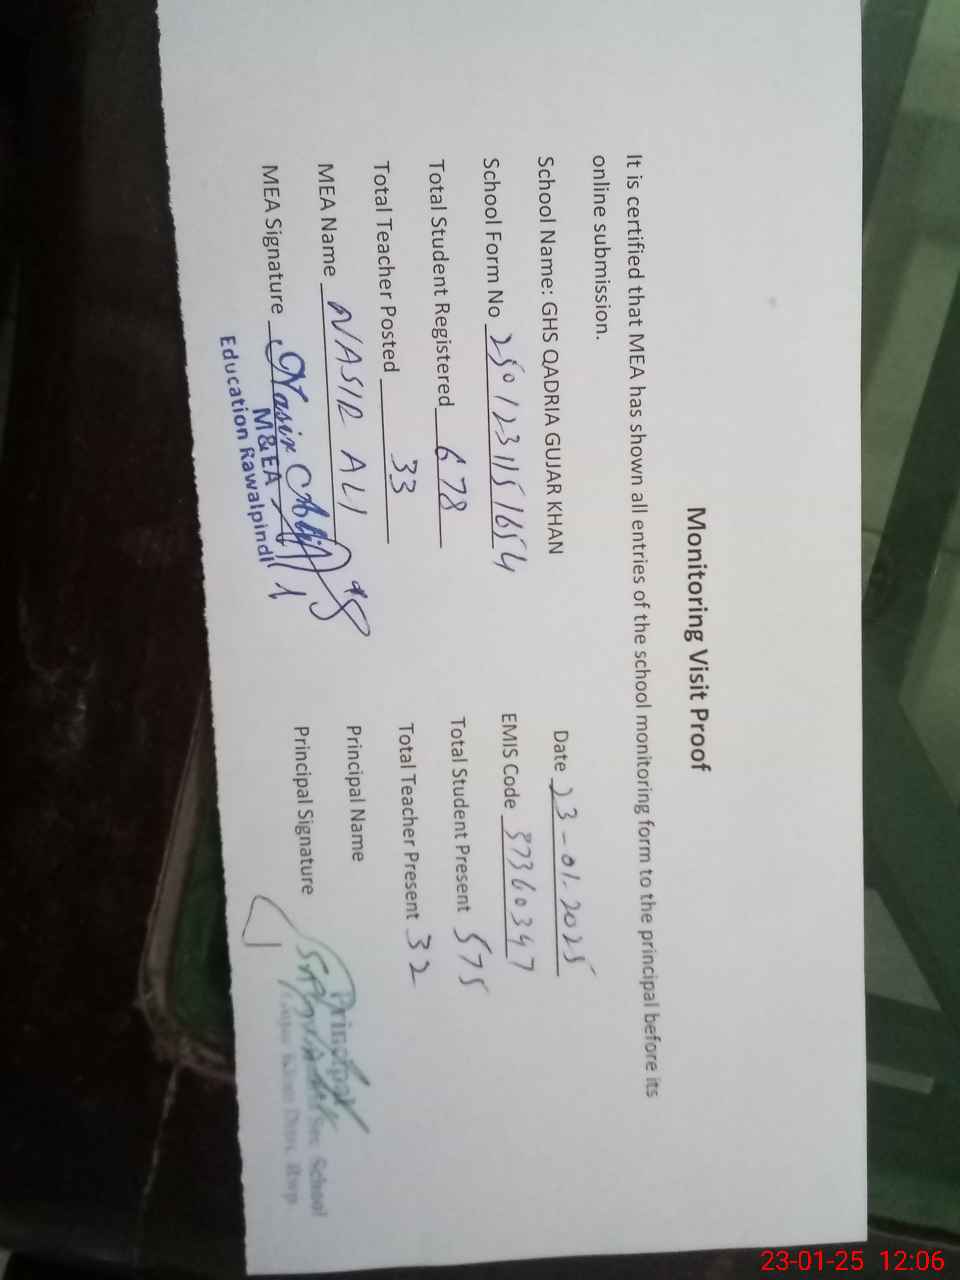 Monitoring Visit Proof
It is certified that MEA has shown all entries of the school monitoring form to the principal before its
online submission.
School Name: GHS QADRIA GUJAR KHAN
Date 23-01-2025
School Form No 2501231151654
EMIS Code 37360347
Total Student Registered 678
Total Student Present 575
Total Teacher Posted 33
Total Teacher Present 32
MEA Name NASIR ALI
Principal Name
MEA Signature Nasir Ali
Principal Signature
M&EA
Education Rawalpindi
Principal
Sec. School
23-01-25 12:06